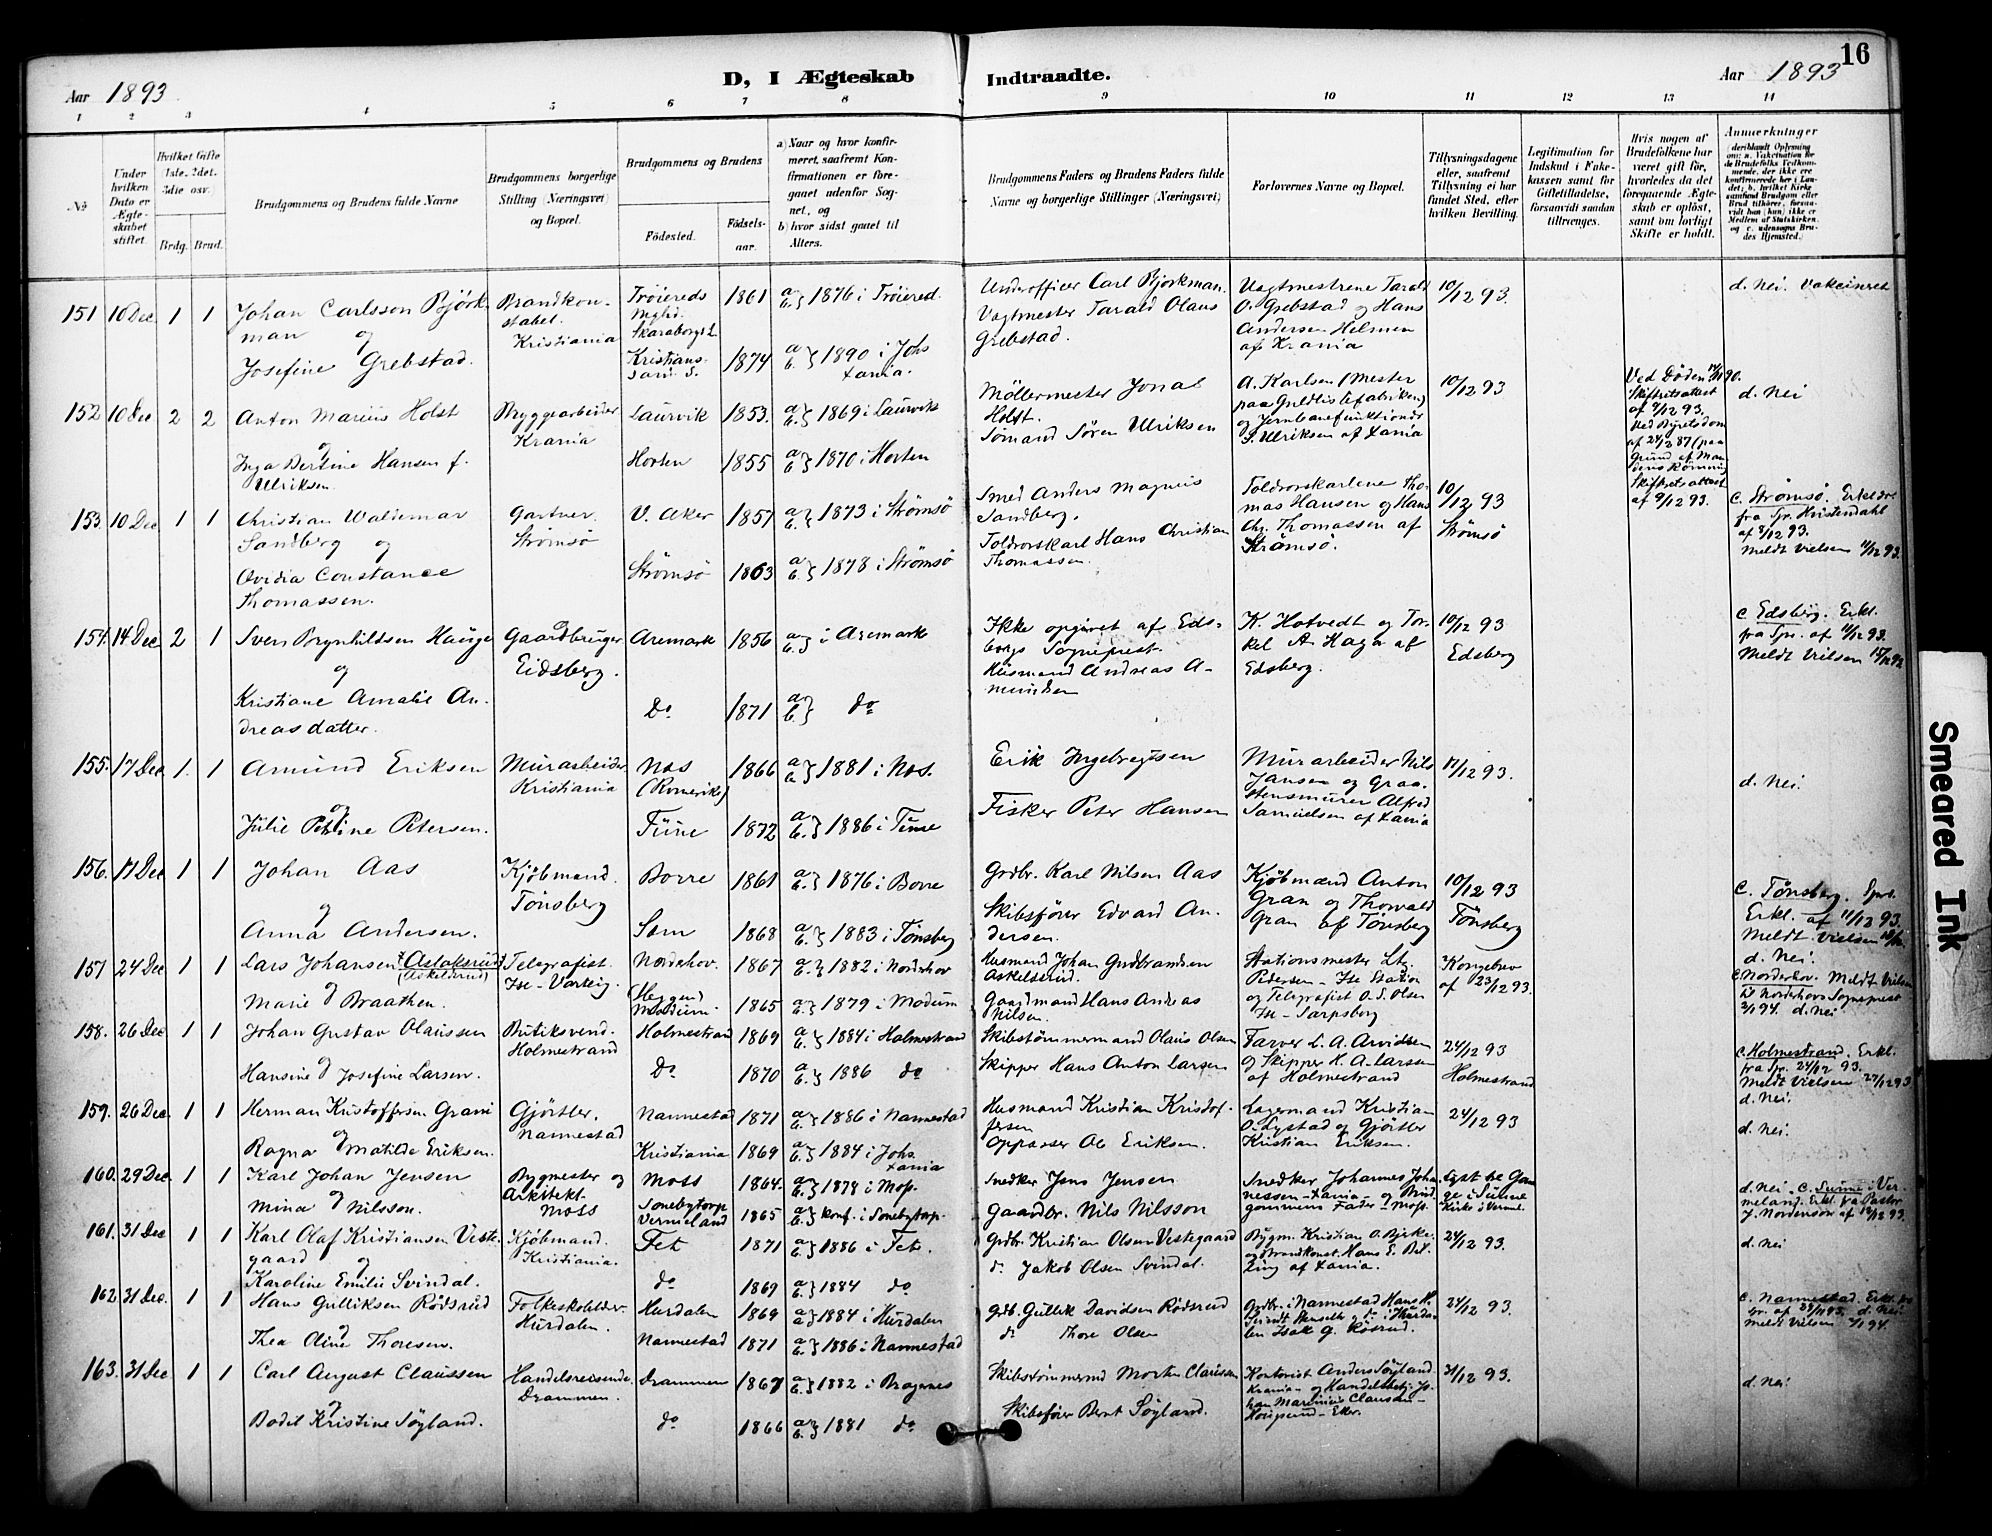 16
Aar 1893
D, I Ægteskab
Indtraadte.
Aar 1893
1 2 3 4 5 6 7 8 9 10 11 12 13 14
No
Under hvilken Dato er Ægteskabet stiftet.
Hvilket Gifte (1ste, 2det, 3die osv.)
Brdg. Brud.
Brudgommens og Brudens fulde Navne
Brudgommens borgerlige Stilling (Næringsvei) og Bopæl.
Brudgommens og Brudens
Fødested.
Fødselsaar.
a) Naar og hvor
b) hvor sidst gaaet til Alters.
Brudgommens Faders og Brudens Faders fulde Navne og borgerlige Stillinger (Næringsvei)
Forlovernes Navne og Bopæl.
Tillysningsdagene eller, saafremt Tillysning ei har fundet Sted, efter hvilken Bevilling.
Legitimation for Indskud i Enkekassen samt for Giftetilladelse, forsaavidt saadan tiltrænges.
Hvis nogen af Brudefolkene har været gift før, hvorledes da det foregaaende Ægteskab er opløst, samt om lovligt Skifte er holdt.
Anmerkninger
151 10 Dec 1 1 Johan Carlsson Björkman og Brandkonstabel. Kristiania Trøiereds 1861 a b } 1876 i Trøiered. Underofficer Carl Bjorkman. Vagtmestrene Tarald O. Grebstad og Hans Andersen Helmen af Xrania 10/12 93. d. Nei. Vakcineret
Josefine Grebstad. Kristianssand S. 1874 a b } 1890 i Johs Xania. Vagtmester Tarald Olaus Grebstad.
152 10 Dec 2 2 Anton Marius Holst og Bryggearbeider Krania Laurvik 1853. a b } 1869 i Laurvik Möllermester Jonas Holst. A. Karlsen (Mester 10/12 93 Ved Døden Skifteattest af 9/12 93. d. Nei
Inga Bertine Hansen f. Ulriksen. Horten 1855 a b } 1870 i Horten Sømand Søren Ulriksen S. Ulriksen af Xania Skifteattest af 9/12 93.
153. 10 Dec 1 1 Christian Waldemar Sandberg og Gartner. Strømsø V. Aker 1857 a b } 1873 i Strømsø Smed Anders Magnus Sandberg. Thomas Hansen og Hans Chr. Thomassen af Strømsø. 10/12 93 Strømsø C. Strømsø.
Ovidia Constance Thomassen. Strømsø 1863 a b } 1878 i Strømsø Hans Christian Thomassen. Meldt Vielsen 11/12 93.
154. 14 Dec 2 1 Sven Brynhildsen Hauge og Gaardbruger Eidsberg. Aremark 1856 a b } i Aremark Ikke opgivet af Edsbergs Sogneprest. K. Hotvedt og Torkel A. Haga af Edsberg. 10/12 93 Edsberg C Edsberg. Erkl. fra Spr. af 11/12 93.
Kristiane Amalie Andreasdatter. Do 1871 a b } do Husmand Andreas Amundsen Meldt Vielsen
155. 17 Dec 1. 1 Amund Eriksen og Murarbeider Kristiania Nes (Romerike) 1866 a b } 1881 i Nes. Erik Ingebregtsen Murarbeider Nils Jansen og Graastensmurer Alfred Samuelsen af Xania 17/12 93. d. Nei.
Julie Petrine Petersen. 1872 a b } 1886 i Fisker Peter Hansen
156. 17 Dec 1 1 Johan Aas og Kjöbmand. Tönsberg Borre 1861 a b } 1876 i Borre Grdbr. Karl Nilsen Aas Kjöbmænd Anton Gran og Thorvald Gran af Tönsberg 10/12 93 Tönsberg C. Tönsberg. Sprs. Erkl. af 11/12 93.
Anna Andersen. Sem 1868 a b } 1883 i Tönsberg Skibsfører Edvard Andersen. Meldt Vielsen d. Nei.
157 24 Dec 1 1 Lars Johansen Aslaksrud (Askelsrud) og Telegrafist. Ise - Varteig. Norderhov. 1867 a b } 1882 i Norderhov Husmand Johan Gudbrandsen Askelsrud. Stationsmester Pedersen - Ise Station og Telegrafist O. S. Olsen Ise - Sarpsborg Kongebrev af 23/12 93. C. Norderhov. Meldt Vielsen
Marie Braathen. (Heggen) Modum. 1865 a b } 1879 i Modum Gaardmand Hans Andreas Nilsen. d. Nei
158. 26 Dec 1 1 Johan Gustav Olaussen og Butiksvend. Holmestrand Holmestrand 1869 a b } 1884 i Holmestrand Skibstömmermand Olaus Olsen Farver L. A. Arvidsen og Skipper H. A. Larsen af Holmestrand 24/12 93 Holmestrand C. Holmestrand. Erkl. fra Spr. 24/12 93. Meldt Vielsen 27/12 93
Hansine Josefine Larsen. Do 1870 a b } 1886 do Skipper Hans Anton Larsen d. Nei.
159. 26 Dec. 1 1 Herman Kristoffersen og Gjörtler. Nannestad Nannestad 1871 a b } 1886 i Nannestad Husmand Kristian Kristoffersen Lagermand Kristian O. Lystad og Gjörtler Kristian Eriksen. 24/12 93 d. Nei.
Ragna Matilde Eriksen. Kristiania 1869 a b } 1884 i Johs Xania Oppasser Ole Eriksen.
160. 29 Dec 1 1 Karl Johan Jensen og Bygmester og Arkitekt. Moss Moss 1864. a b } 1878 i Moss. Snedker Jens Jensen Snedker Johannes Johannessen - Xania - og Brudgommens Fader - Moss. Lyst tre Gange i Sunne Kirke i Verml. d. Nei. C. Sunne i Vermeland. Erkl. fra Pastor
Mina Nilsson. Vermland 1865 a b } konf. i Gaardbr. Nils Nilsson
161. 31 Dec 1 1 Karl Olaf Kristiansen Vestegaard og Kjöbmand. Kristiania. Fet 1871 a b } 1886 i Fet. Grdbr. Kristian Olsen Vestegaard Bygm. Kristian O. og Brandkonst. Hans E. af Xania. 24/12 93. d. Nei
Karoline Emilie Svindal. do 1869 a b } 1884 do do Jakob Olsen Svindal.
162 31 Dec. 1 1 Hans Gulliksen Rödsrud og Folkeskolelærer Hurdalen. Hurdalen 1869 a b } 1884 i Hurdalen Grdb. Gullik Davidsen Rödsrud Grdbr. i Nannestad Hans H. 24/12 93. C. Nannestad. d. Nei.
Thea Oline Thoresen. Nannestad 1871 a b } 1886 i Nannestad do Thore Olsen Isak G. Rösrud. Meldt Vielsen
163. 31 Dec 1 1 Carl August Claussen og Handelsreisende. Drammen. Drammen 1867 a b } 1882 i Bragernes Skibstömmermd Morten Claussen Kontorist Anders Søyland Krania - og 31/12 93. d. Nei.
Bodil Kristine Söyland. do 1866 a b } 1881 do Skibsfører Bernt Söyland.
Smeared Ink